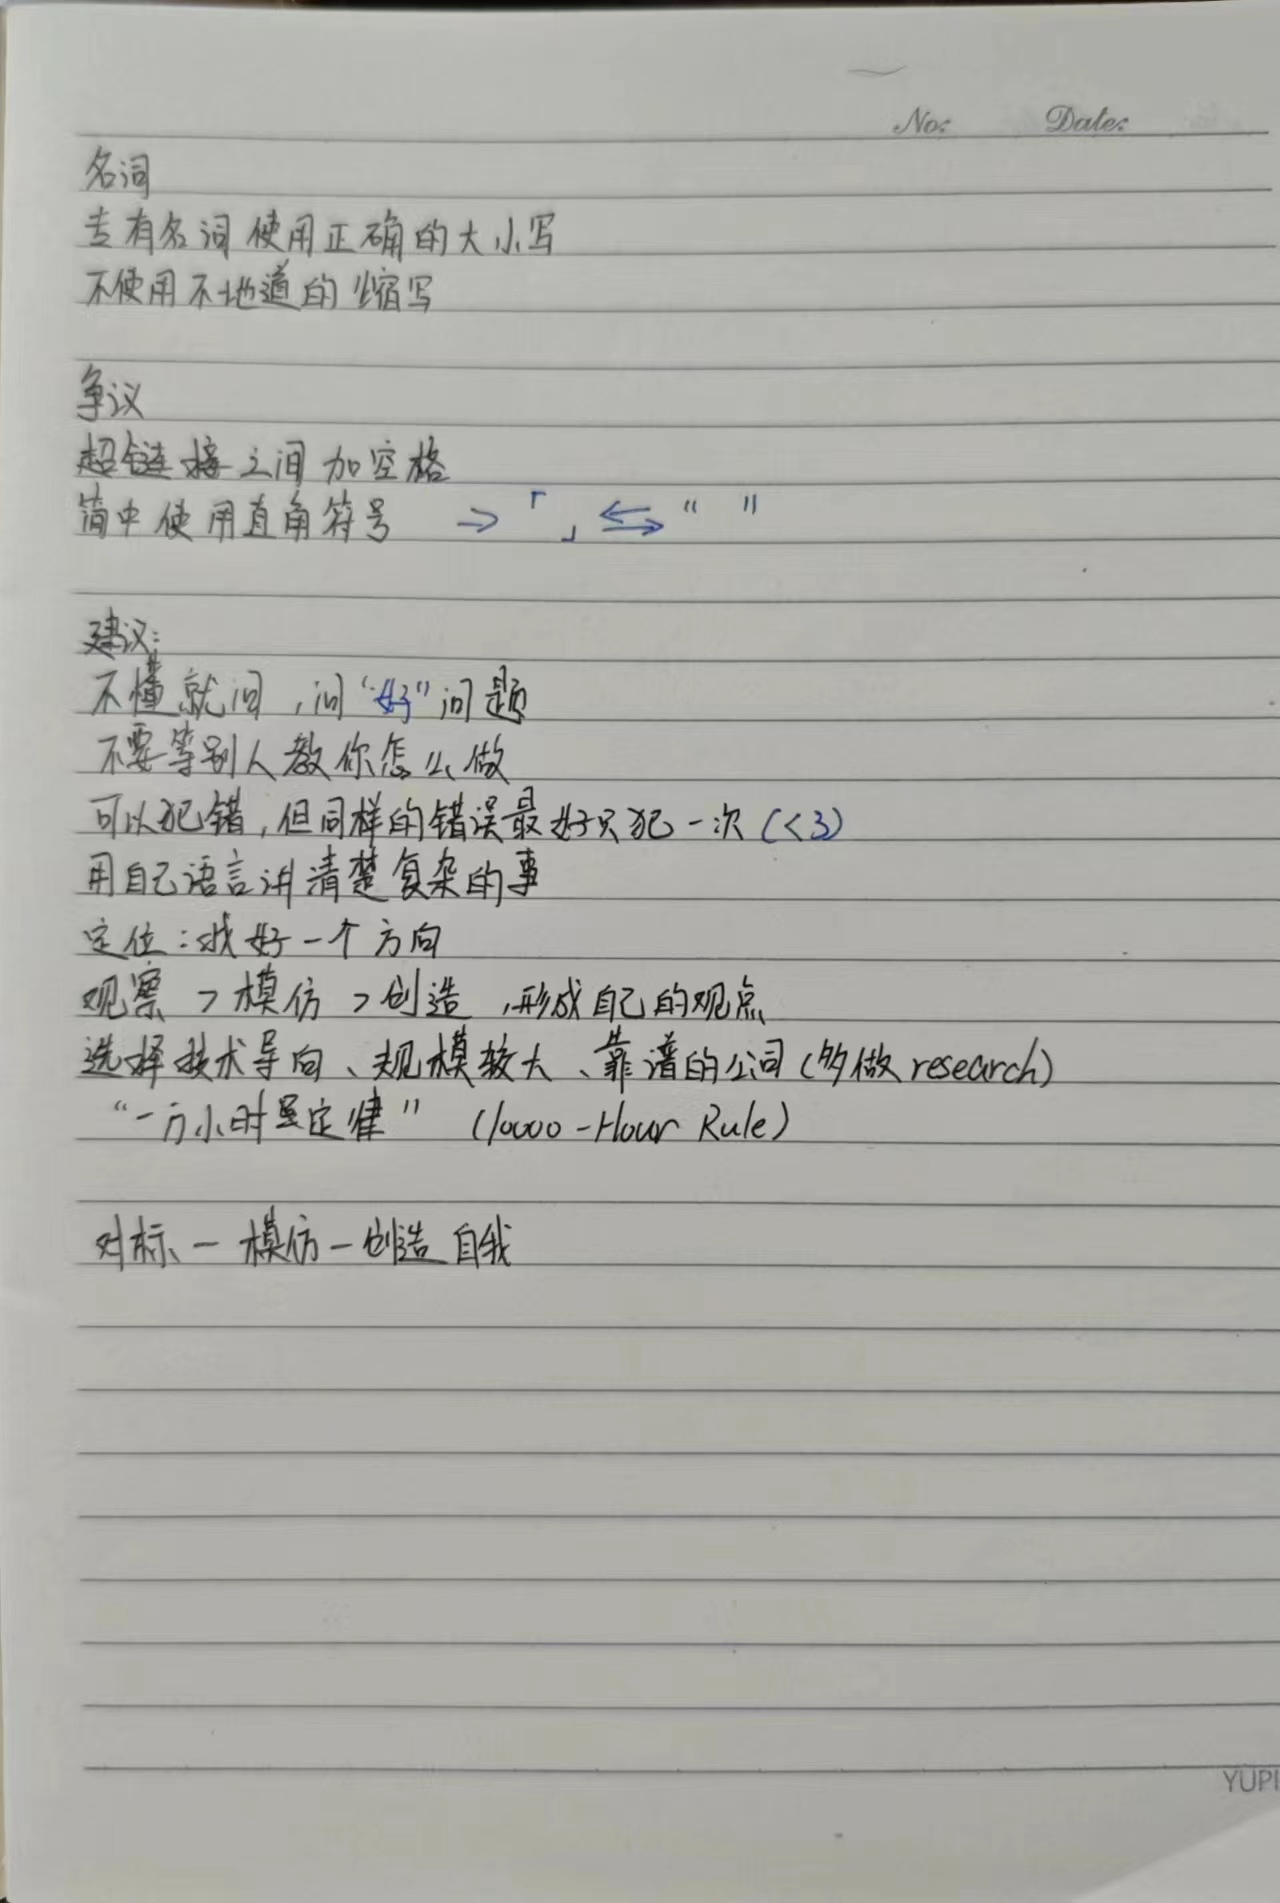 No: Date:
名词
专有名词使用正确的大小写
不使用不地道的缩写
争议
超链接之间加空格
简中使用直角符号 => 「 」 ⇆ “ ”
建议:
不懂就问,问“好”问题
不要等别人教你怎么做
可以犯错,但同样的错误最好只犯一次(<3)
用自己语言讲清楚复杂的事
定位:找好一个方向
观察 > 模仿 > 创造,形成自己的观点
选择技术导向、规模较大、靠谱的公司(多做research)
“一万小时定律” (10000-Hour Rule)
对标-模仿-创造自我
YUPI